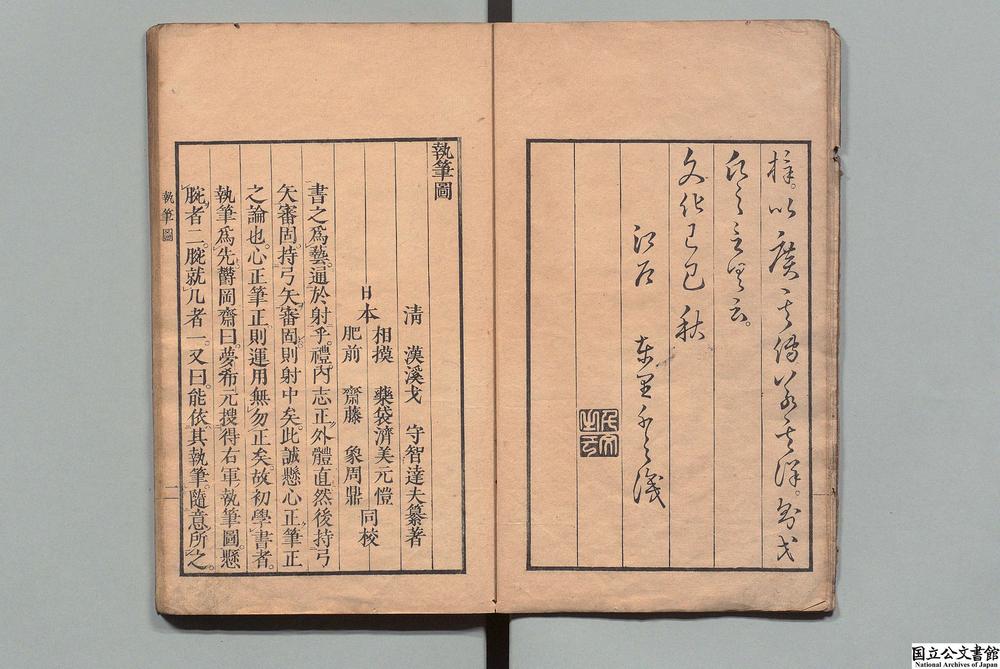 梓。以廣其傳。若其詳。則戈
氏之言具云。
文化己巳秋
東里
執筆圖
清 漢溪戈 守智達夫纂著
日本 相摸 藥袋濟美元愷
肥前 齋藤 象周鼎 同校
書之爲藝。通於射乎。禮。内志正。外體直。然後持弓
矢審固。持弓矢審固。則射中矣。此誠懸心正筆正
之論也。心正筆正則運用無勿正矣。故初學書者。
執筆爲先。欝岡齋曰。夢希元搜得右軍執筆圖。懸
腕者二。腕就几者一。又曰。能依其執筆。隨意所之。
執筆圖
一
国立公文書館
National Archives of Japan